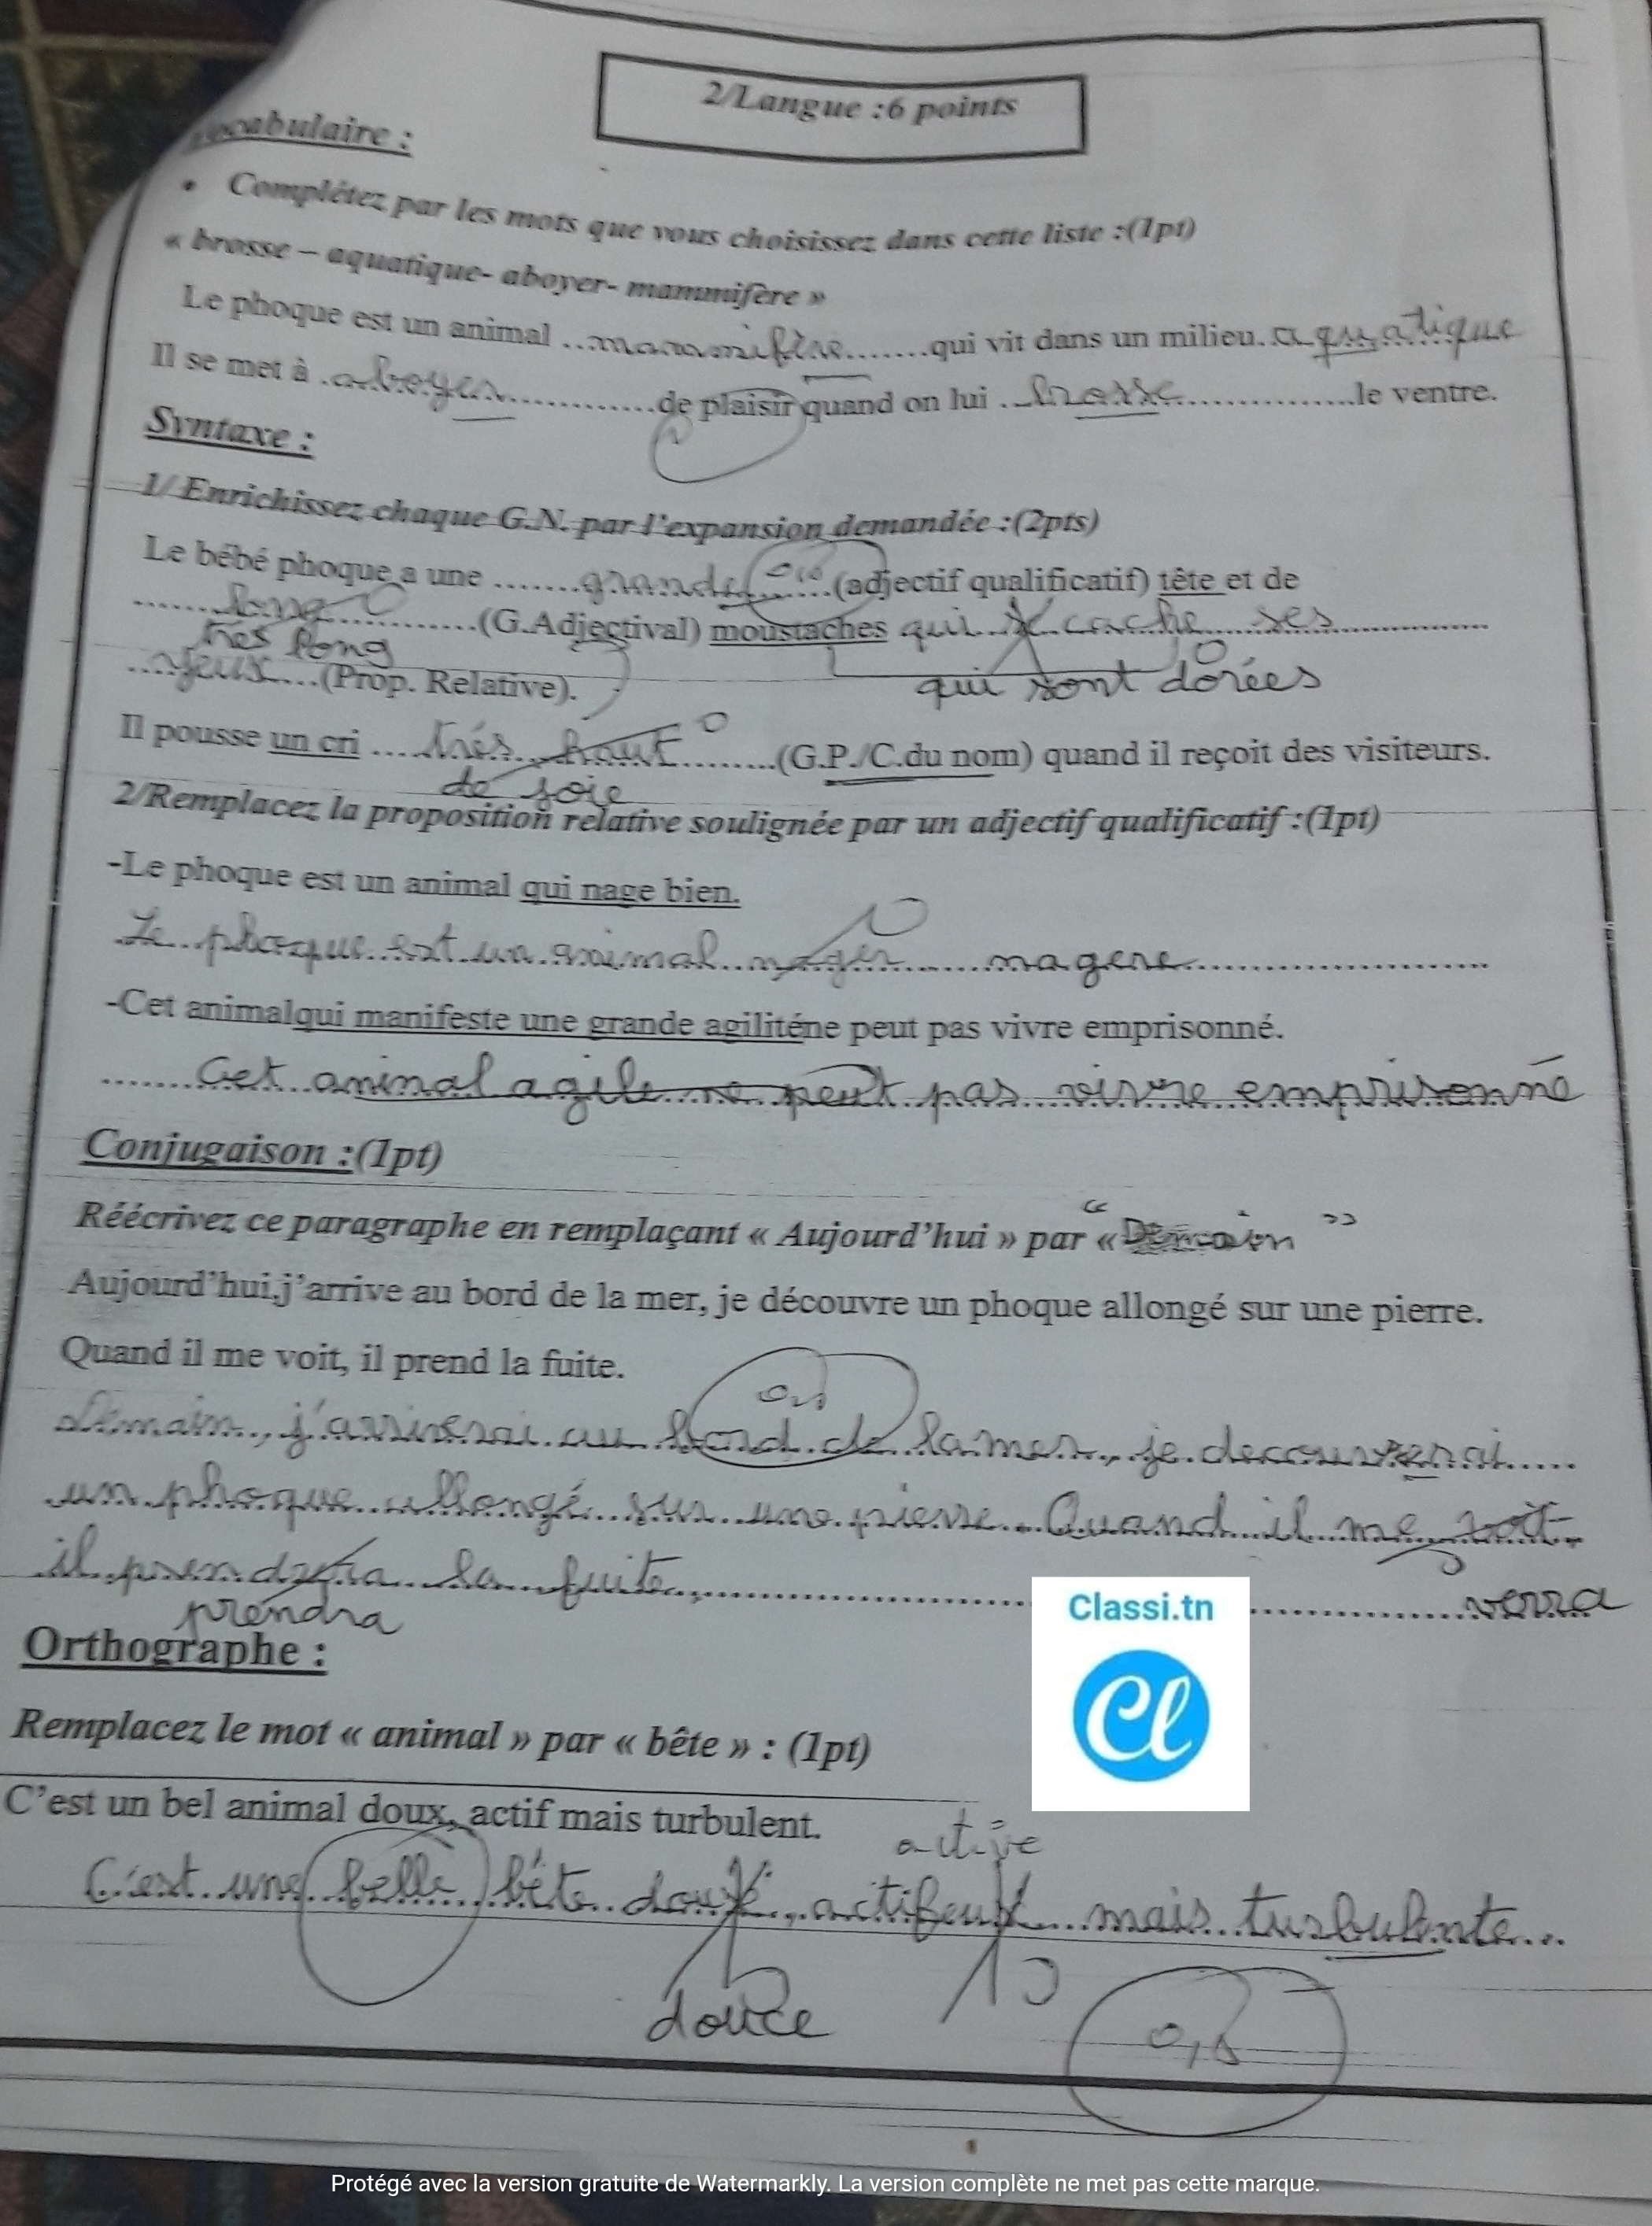 2/Langue :6 points
Vocabulaire :
• Complétez par les mots que vous choisissez dans cette liste :(1pt)
« brosse – aquatique- aboyer- mammifère »
Le phoque est un animal ..mammifère.......qui vit dans un milieu..aquatique
Il se met à .aboyer.............de plaisir quand on lui ..brosse...............le ventre.
Syntaxe :
1/ Enrichissez chaque G.N. par l'expansion demandée :(2pts)
Le bébé phoque a une .......grande.......(adjectif qualificatif) tête et de
.......long............(G.Adjectival) moustaches qui se cache ses..............
très long
....yeux....(Prop. Relative).
qui sont dorées
Il pousse un cri ....très haut.........(G.P./C.du nom) quand il reçoit des visiteurs.
de joie
2/Remplacez la proposition relative soulignée par un adjectif qualificatif :(1pt)
-Le phoque est un animal qui nage bien.
Le phoque est un animal nager nagere
-Cet animalqui manifeste une grande agiliténe peut pas vivre emprisonné.
Cet animal agile ne peut pas vivre emprisonné
Conjugaison :(1pt)
Réécrivez ce paragraphe en remplaçant « Aujourd'hui » par « "Demain"
Aujourd'hui,j'arrive au bord de la mer, je découvre un phoque allongé sur une pierre.
Quand il me voit, il prend la fuite.
0,5
Demain, j'arriverai au bord de la mer, je decouvrerai
un phoque allongé sur une pierre. Quand il me voit
il prendra la fuite
verra
prendra
Classi.tn
Cl
Orthographe :
Remplacez le mot « animal » par « bête » : (1pt)
C'est un bel animal doux, actif mais turbulent.
active
C'est une belle bête douxe, actifeux mais turbulente
douce
0,5
Protégé avec la version gratuite de Watermarkly. La version complète ne met pas cette marque.